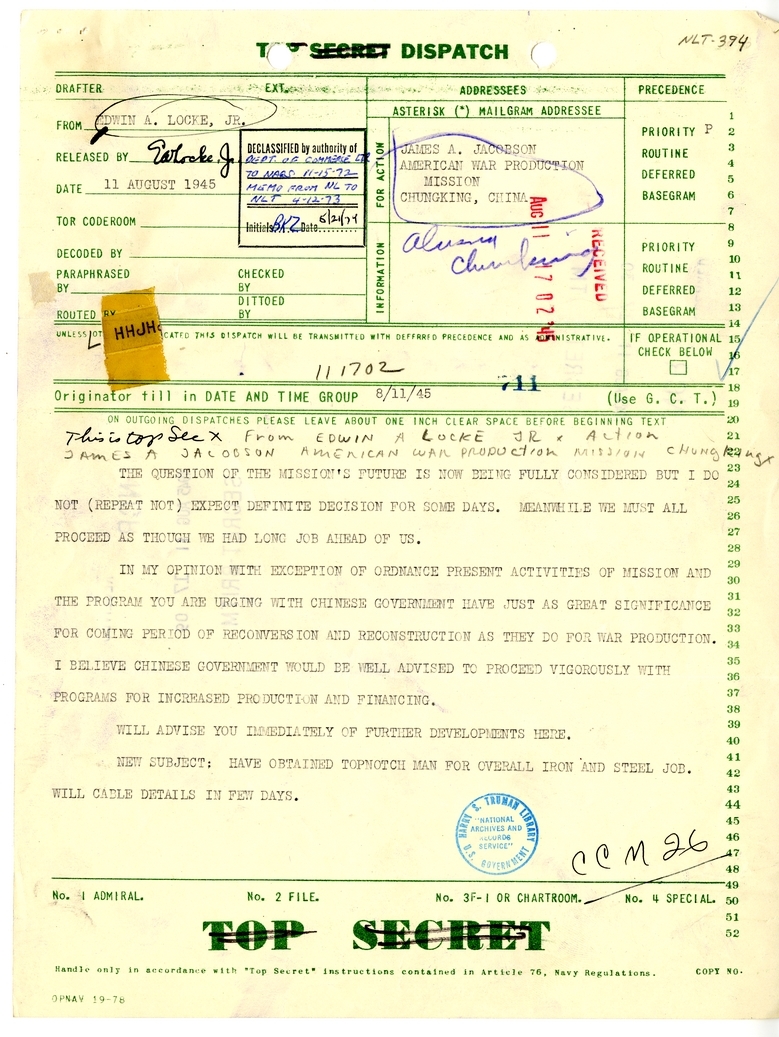 NLT-394
TOP SECRET DISPATCH
DRAFTER EXT.
ADDRESSEES
PRECEDENCE
ASTERISK (*) MAILGRAM ADDRESSEE
FROM EDWIN A. LOCKE, JR.
RELEASED BY EALocke, Jr
DATE 11 AUGUST 1945
TOR CODEROOM
DECODED BY
PARAPHRASED BY
CHECKED BY
DITTOED BY
ROUTED BY
HHJH
DECLASSIFIED by authority of
DEPT. OF COMMERCE LTR
TO NARS 11-15-72
MEMO FROM NL TO
NLT 4-12-73
Initials BKZ Date 8/21/74
FOR ACTION
JAMES A. JACOBSON
AMERICAN WAR PRODUCTION
MISSION
CHUNGKING, CHINA
INFORMATION
Alusna
Chunking
RECEIVED
AUG 11 17 02 '45
PRIORITY P
ROUTINE
DEFERRED
BASEGRAM
PRIORITY
ROUTINE
DEFERRED
BASEGRAM
UNLESS CATED THIS DISPATCH WILL BE TRANSMITTED WITH DEFERRED PRECEDENCE AND AS ADMINISTRATIVE.
IF OPERATIONAL
CHECK BELOW
111702
711
Originator fill in DATE AND TIME GROUP 8/11/45 (Use G. C. T.)
ON OUTGOING DISPATCHES PLEASE LEAVE ABOUT ONE INCH CLEAR SPACE BEFORE BEGINNING TEXT
This is top Sec X From EDWIN A LOCKE JR x Action
JAMES A JACOBSON AMERICAN WAR PRODUCTION MISSION CHungKingx
THE QUESTION OF THE MISSION'S FUTURE IS NOW BEING FULLY CONSIDERED BUT I DO
NOT (REPEAT NOT) EXPECT DEFINITE DECISION FOR SOME DAYS. MEANWHILE WE MUST ALL
PROCEED AS THOUGH WE HAD LONG JOB AHEAD OF US.
IN MY OPINION WITH EXCEPTION OF ORDNANCE PRESENT ACTIVITIES OF MISSION AND
THE PROGRAM YOU ARE URGING WITH CHINESE GOVERNMENT HAVE JUST AS GREAT SIGNIFICANCE
FOR COMING PERIOD OF RECONVERSION AND RECONSTRUCTION AS THEY DO FOR WAR PRODUCTION.
I BELIEVE CHINESE GOVERNMENT WOULD BE WELL ADVISED TO PROCEED VIGOROUSLY WITH
PROGRAMS FOR INCREASED PRODUCTION AND FINANCING.
WILL ADVISE YOU IMMEDIATELY OF FURTHER DEVELOPMENTS HERE.
NEW SUBJECT: HAVE OBTAINED TOPNOTCH MAN FOR OVERALL IRON AND STEEL JOB.
WILL CABLE DETAILS IN FEW DAYS.
HARRY S. TRUMAN LIBRARY
"NATIONAL
ARCHIVES AND
RECORDS
SERVICE"
U.S. GOVERNMENT
CCM 26
No. 1 ADMIRAL. No. 2 FILE. No. 3F-1 OR CHARTROOM. No. 4 SPECIAL.
TOP SECRET
Handle only in accordance with "Top Secret" instructions contained in Article 76, Navy Regulations. COPY NO.
OPNAV 19-78
1
2
3
4
5
6
7
8
9
10
11
12
13
14
15
16
17
18
19
20
21
22
23
24
25
26
27
28
29
30
31
32
33
34
35
36
37
38
39
40
41
42
43
44
45
46
47
48
49
50
51
52